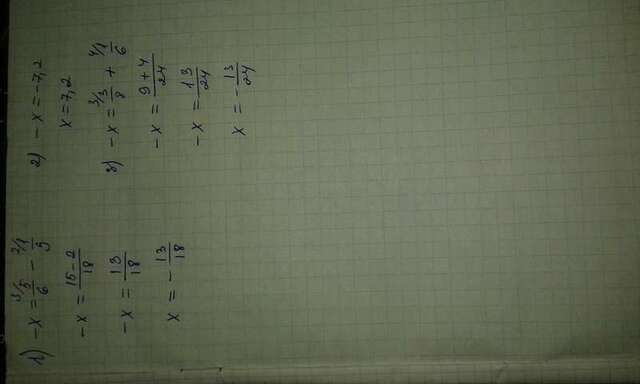 1) -x = ³⁄5/6 - ²⁄1/9
-x = 15-2/18
-x = 13/18
x = -13/18
2) -x = -7,2
x = 7,2
3) -x = ³⁄3/8 + ⁴⁄1/6
-x = 9+4/24
-x = 13/24
x = -13/24